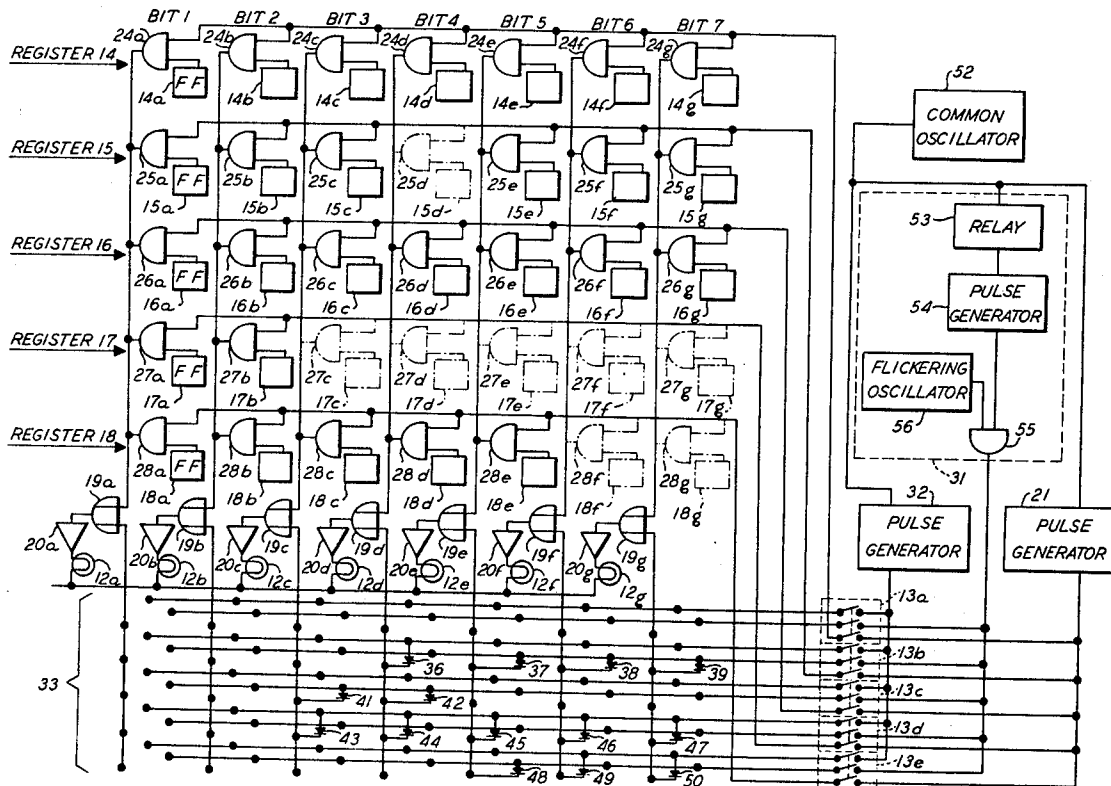 BIT 1 BIT 2 BIT 3 BIT 4 BIT 5 BIT 6 BIT 7
24a 24b 24c 24d 24e 24f 24g
REGISTER 14
FF
14a 14b 14c 14d 14e 14f 14g
REGISTER 15
25a 25b 25c 25d 25e 25f 25g
FF
15a 15b 15c 15d 15e 15f 15g
REGISTER 16
26a 26b 26c 26d 26e 26f 26g
FF
16a 16b 16c 16d 16e 16f 16g
REGISTER 17
27a 27b 27c 27d 27e 27f 27g
FF
17a 17b 17c 17d 17e 17f 17g
REGISTER 18
28a 28b 28c 28d 28e 28f 28g
FF
18a 18b 18c 18d 18e 18f 18g
19a 19b 19c 19d 19e 19f 19g
20a 20b 20c 20d 20e 20f 20g
12a 12b 12c 12d 12e 12f 12g
33
36 37 38 39
41 42
43 44 45 46 47
48 49 50
13a
13b
13c
13d
13e
52
COMMON
OSCILLATOR
53
RELAY
54
PULSE
GENERATOR
FLICKERING
OSCILLATOR
56
55
31
32
PULSE
GENERATOR
21
PULSE
GENERATOR